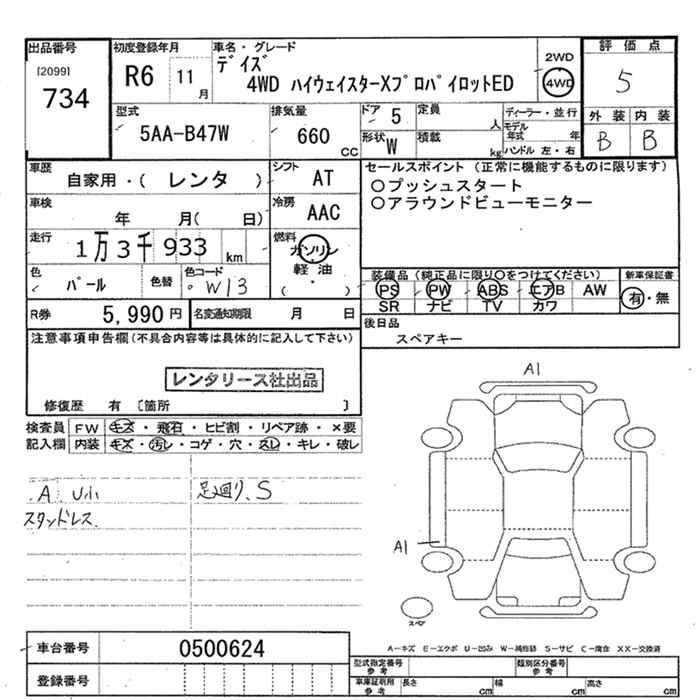 出品番号 初度登録年月 車名・グレード 評価点
[2099] デイズ 2WD
734 R6 11月 4WD ハイウェイスターXプロパイロットED 4WD 5
型式 排気量 ドア 5 定員 人 ディーラー・並行 外装 内装
5AA-B47W 660 CC 形状 W 積載 kg モデル年式 年 B B
ハンドル 左・右
車歴 シフト セールスポイント (正常に機能するものに限ります)
自家用・( レンタ ) AT ○プッシュスタート
車検 冷房 ○アラウンドビューモニター
年 月( 日) AAC
走行 燃料
1万3千933 km ガソリン
軽油
・
( )
色 色コード 装備品 (純正品に限り○をつけてください) 新車保証書
パール 色替 W13 PS PW ABS エアB AW 有・無
SR ナビ TV カワ
R券 5,990円 名変通知期限 月 日 後日品
スペアキー
注意事項申告欄(不具合内容等は具体的に記入して下さい)
レンタリース社出品
修復歴 有 〔箇所 〕
検査員 FW キズ・飛石・ヒビ割・リペア跡・×要
記入欄 内装 キズ・汚レ・コゲ・穴・スレ・キレ・破レ
A U小 足廻り、S
スタッドレス
A1
A1
スペア
A-キズ E-エクボ U-凹み W-補修跡 S-サビ C-腐食 XX-交換済
車台番号 0500624
登録番号
型式指定番号 参考 類別区分番号 参考
車庫証明用 参考 長さ cm 幅 cm 高さ cm